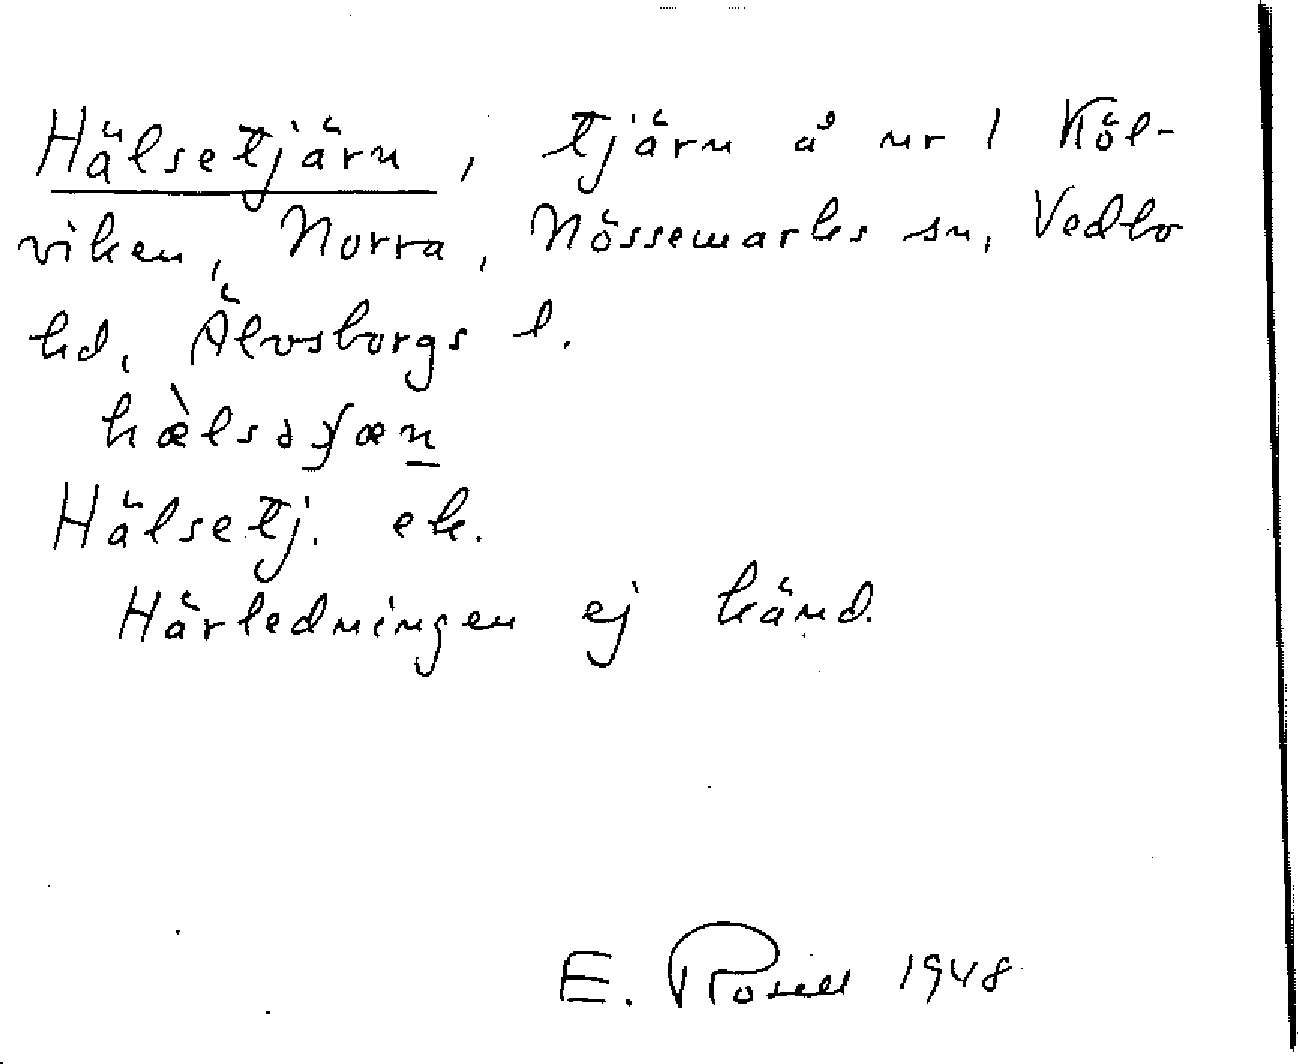 Hälsetjärn, tjärn å nr 1 Köl-
viken, Norra, Nössemarks sn, Vedbo
hd, Älvsborgs l.
Hälsetj. ek.
Härledningen ej känd.
E. Rosell 1948